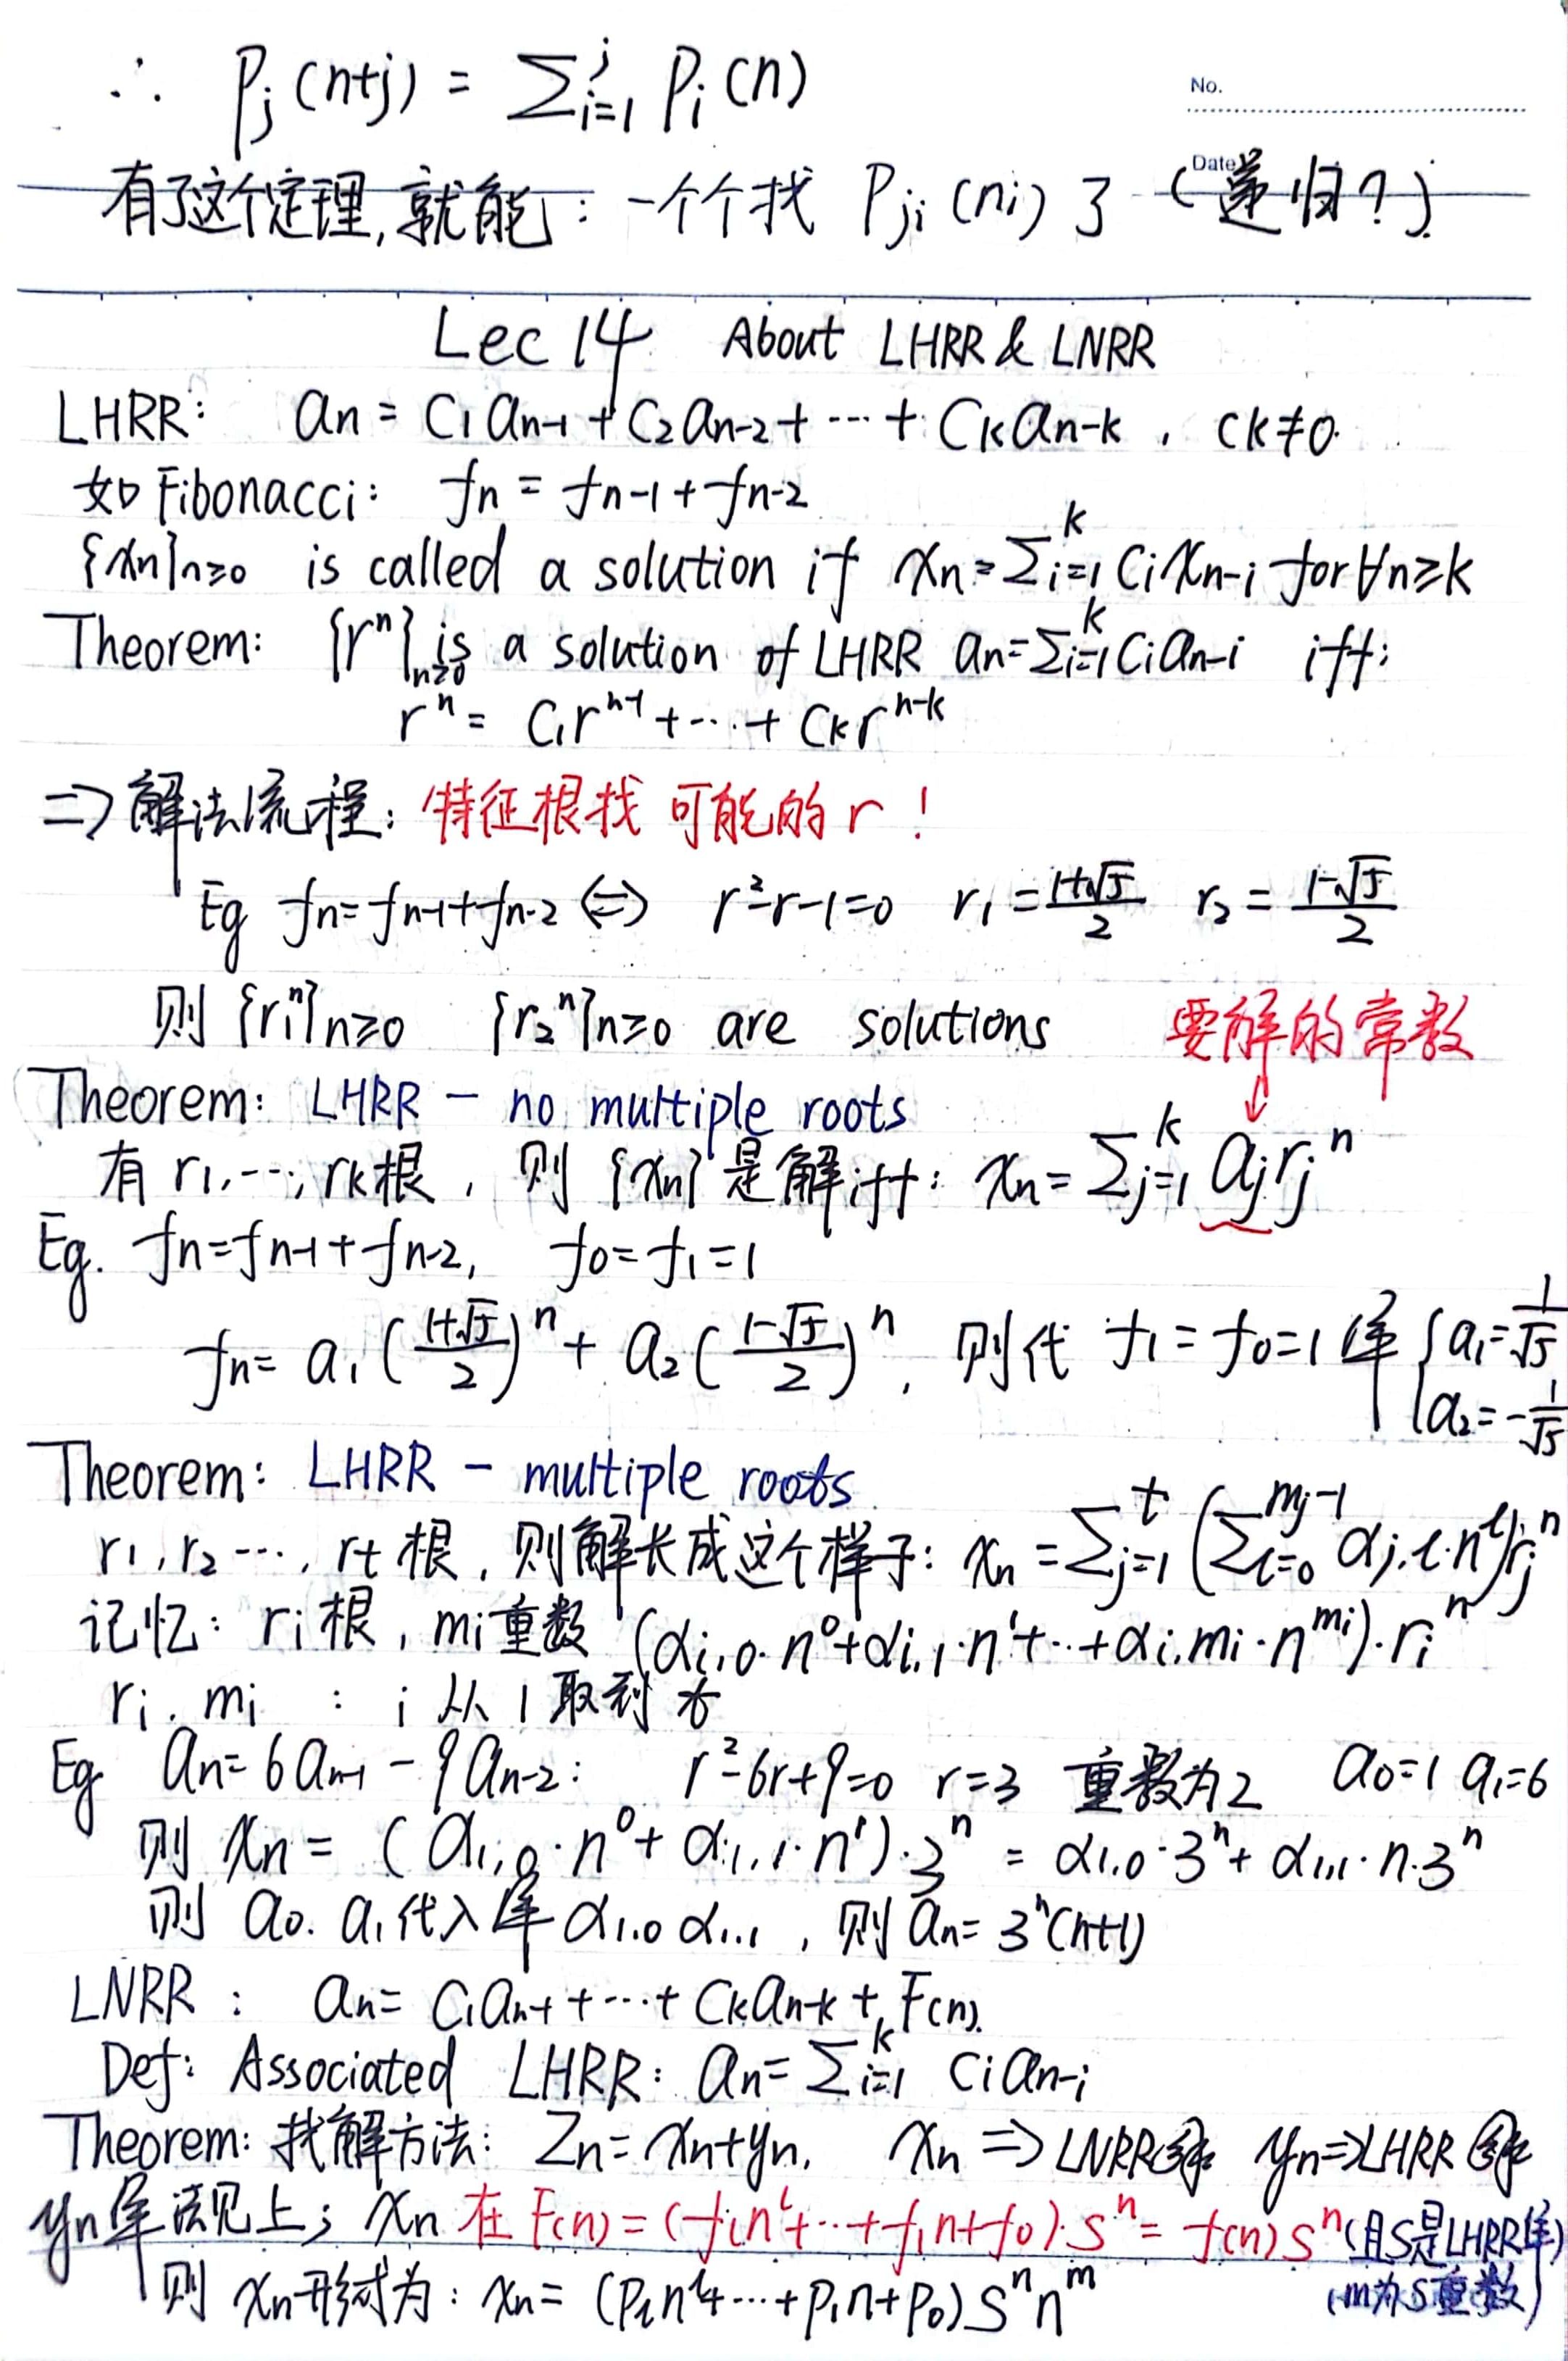 ∴ P_j(n+j) = Σ_{i=1}^{j} P_i(n)
No.
Date
有了这个定理,就能:一个个找 P_{ji}(n_i)了 (递归?)
Lec 14 About LHRR & LNRR
LHRR: a_n = C_1a_{n-1} + C_2a_{n-2} + ⋯ + C_ka_{n-k}, c_k≠0.
如 Fibonacci: f_n = f_{n-1} + f_{n-2}
{x_n}_{n≥0} is called a solution if x_n = Σ_{i=1}^{k} C_ix_{n-i} for ∀n≥k
Theorem: {r^n}_{n≥0} is a solution of LHRR a_n = Σ_{i=1}^{k} C_ia_{n-i} iff:
r^n = C_1r^{n-1} + ⋯ + C_kr^{n-k}
⇒ 解法流程: 特征根找 可能的 r !
Eg f_n = f_{n-1} + f_{n-2} ⇔ r^2-r-1=0 r_1 = \frac{1+√5}{2} r_2 = \frac{1-√5}{2}
则 {r_1^n}_{n≥0} {r_2^n}_{n≥0} are solutions 要解的常数
Theorem: LHRR - no multiple roots
有 r_1, ⋯, r_k根, 则 {x_n} 是解 iff: x_n = Σ_{j=1}^{k} a_jr_j^n
Eg. f_n = f_{n-1} + f_{n-2}, f_0 = f_1 = 1
f_n = a_1(\frac{1+√5}{2})^n + a_2(\frac{1-√5}{2})^n, 则代 f_1 = f_0 = 1 解 {a_1 = \frac{1}{√5}
a_2 = -\frac{1}{√5}
Theorem: LHRR - multiple roots
r_1, r_2 ⋯, r_t 根, 则解长成这个样子: x_n = Σ_{j=1}^{t}(Σ_{l=0}^{m_j-1} α_{j,l}·n^l)r_j^n
记忆: r_i根, m_i重数 (α_{i,0}·n^0+α_{i,1}·n^1+⋯+α_{i,m_i}·n^{m_i})·r_i^n
r_i, m_i : i 从 1 取到 t
Eg a_n = 6a_{n-1} - 9a_{n-2}: r^2-6r+9=0 r=3 重数为2 a_0=1 a_1=6
则 x_n = (α_{1,0}·n^0 + α_{1,1}·n^1)·3^n = α_{1,0}·3^n + α_{1,1}·n·3^n
则 a_0, a_1代入解 α_{1,0} α_{1,1}, 则 a_n = 3^n(n+1)
LNRR: a_n = C_1a_{n-1} + ⋯ + C_ka_{n-k} + F(n).
Def: Associated LHRR: a_n = Σ_{i=1}^{k} C_ia_{n-i}
Theorem: 找解方法: Z_n = x_n+y_n, x_n ⇒ LNRR的解 y_n ⇒ LHRR的解
y_n解法见上; x_n 在 F(n) = (f_ln^l+⋯+f_1n+f_0)·S^n = f(n)S^n (且S是LHRR解)
则 x_n 形式为: x_n = (P_ln^l+⋯+P_1n+P_0)S^n n^m (m为S重数)